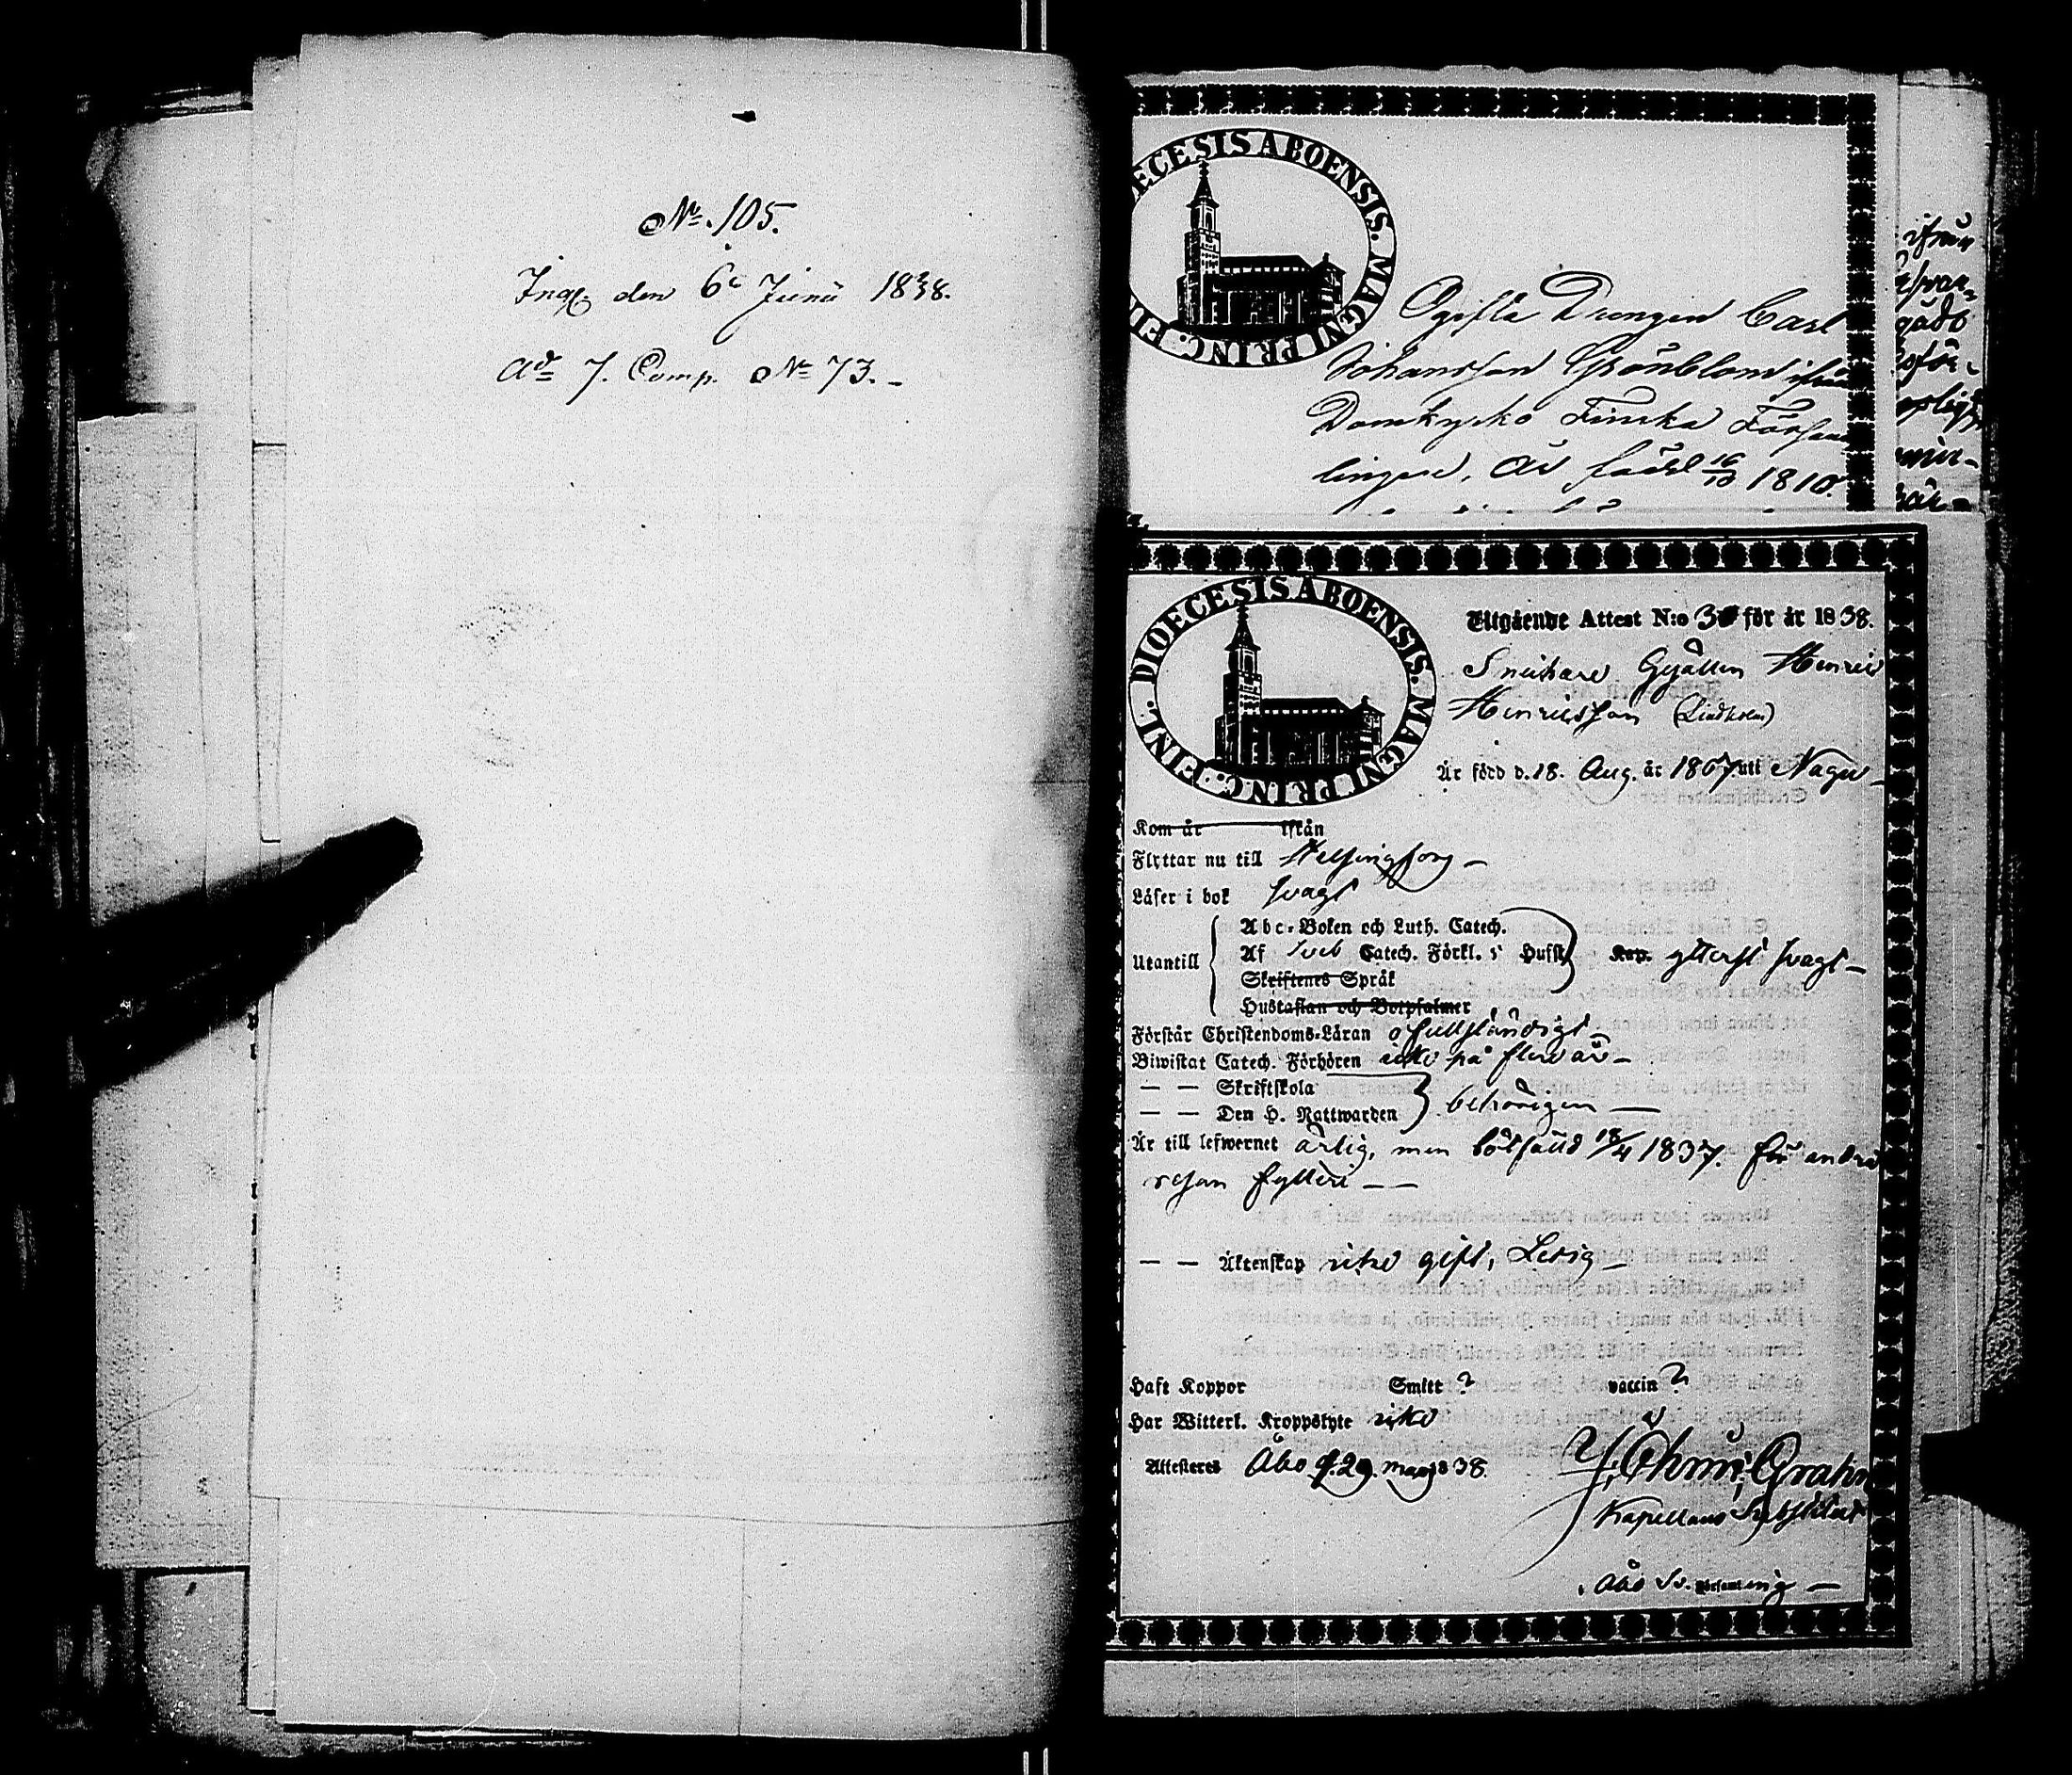 No. 105.
Ingl. den 6e Junii 1838.
Ad 7. Comp. No 73.-
DIOECESIS ABOENSIS. MAGNI PRINC. FINL.
Ogifta Drengen Carl
Johansson Grönblom ifrån
Domkyrko Finska Församlingen, är född 16/10 1810.
DIOECESIS ABOENSIS. MAGNI PRINC. FINL.
Utgående Attest N:o 3 för år 1838.
Snickare Gesällen Henric
Henricsson (Lindholm)
Är född d. 18. Aug. år 1807 uti Nagu -
Kom år ifrån
Flyttar nu till Helsingfors -
Läser i bok svagt
Utantill
Abc-Boken och Luth. Catech.
Af Sveb Catech. Förkl. 5 Hufst.
Kap. ytterst svagt -
Skriftenes Språk
Hustaflan och Botpsalmer
Förstår Christendoms-Läran ofullständigt -
Biwistat Catech. Förhören icke på flere år -
— — Skriftskola
— — Den H. Nattwarden
behörigen —
Är till lefwernet ärlig, men bötfäld 18/4 1837. för andra
resan fylleri — —
— — Äktenskap icke gift, Ledig -
Haft Koppor Smitt ? vaccin ?
Har Witterl. Kroppslyte icke
Attesteras Åbo d. 29. maj 1838.
Grahn
Kapellans Substitut
Åbo Sv. Församling —